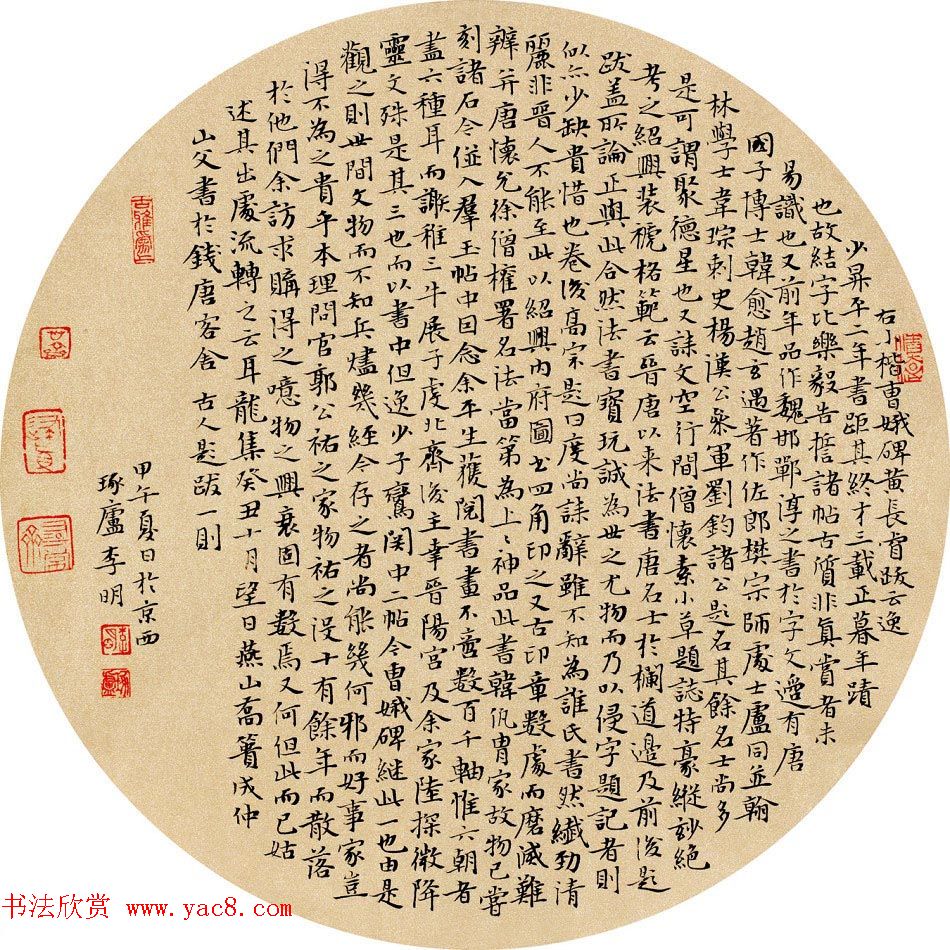 右小楷曹娥碑黄長睿跋云逸
少昇平二年書距其終才三載正暮年蹟
也故結字比樂毅告誓諸帖古質非真賞者未
易識也又前年品作魏邯鄲淳之書於字文邊有唐
國子博士韓愈趙玄遇著作佐郎樊宗師處士盧同並翰
林學士韋琮刺史楊漢公參軍劉鈞諸公題名其餘名士尚多
是可謂聚德星也又誄文空行間僧懷素小草題誌特豪縱妙絕
考之紹興裝標格範云晉唐以来法書唐名士於欄道邊及前後題
跋盖所論正與此合然法書寶玩誠為世之尤物而乃以侵字題記者則
似亦少缺貴惜也卷後高宗題曰度尚誄辭雖不知為誰氏書然纖勁清
麗非晉人不能至此以紹興内府圖書四角印之又古印章數處而磨滅難
辨并唐懷充徐僧權署名法當第為上上神品此書韓侂冑家故物已嘗
刻諸石今併入羣玉帖中因念余平生獲閱書畫不啻数百千軸惟六朝者
盖六種耳而謝稚三牛展子虔北齊後主幸晉陽宫及余家陸探微降
靈文殊是其三也而以書中但逸少子鸞関中二帖今曹娥碑継此一也由是
觀之則世間文物而不知兵燼幾經今存之者尚能幾何邪而好事家豈
得不為之貴乎本理問官郭公祐之家物祐之没十有餘年而散落
於他們余訪求購得之噫物之興衰固有数焉又何但此而已姑
述其出處流轉之云耳龍集癸丑十月望日燕山喬簣成仲
山父書於錢唐客舍 古人題跋一則
甲午夏日於京西
琢廬李明
书法欣赏 www.yac8.com